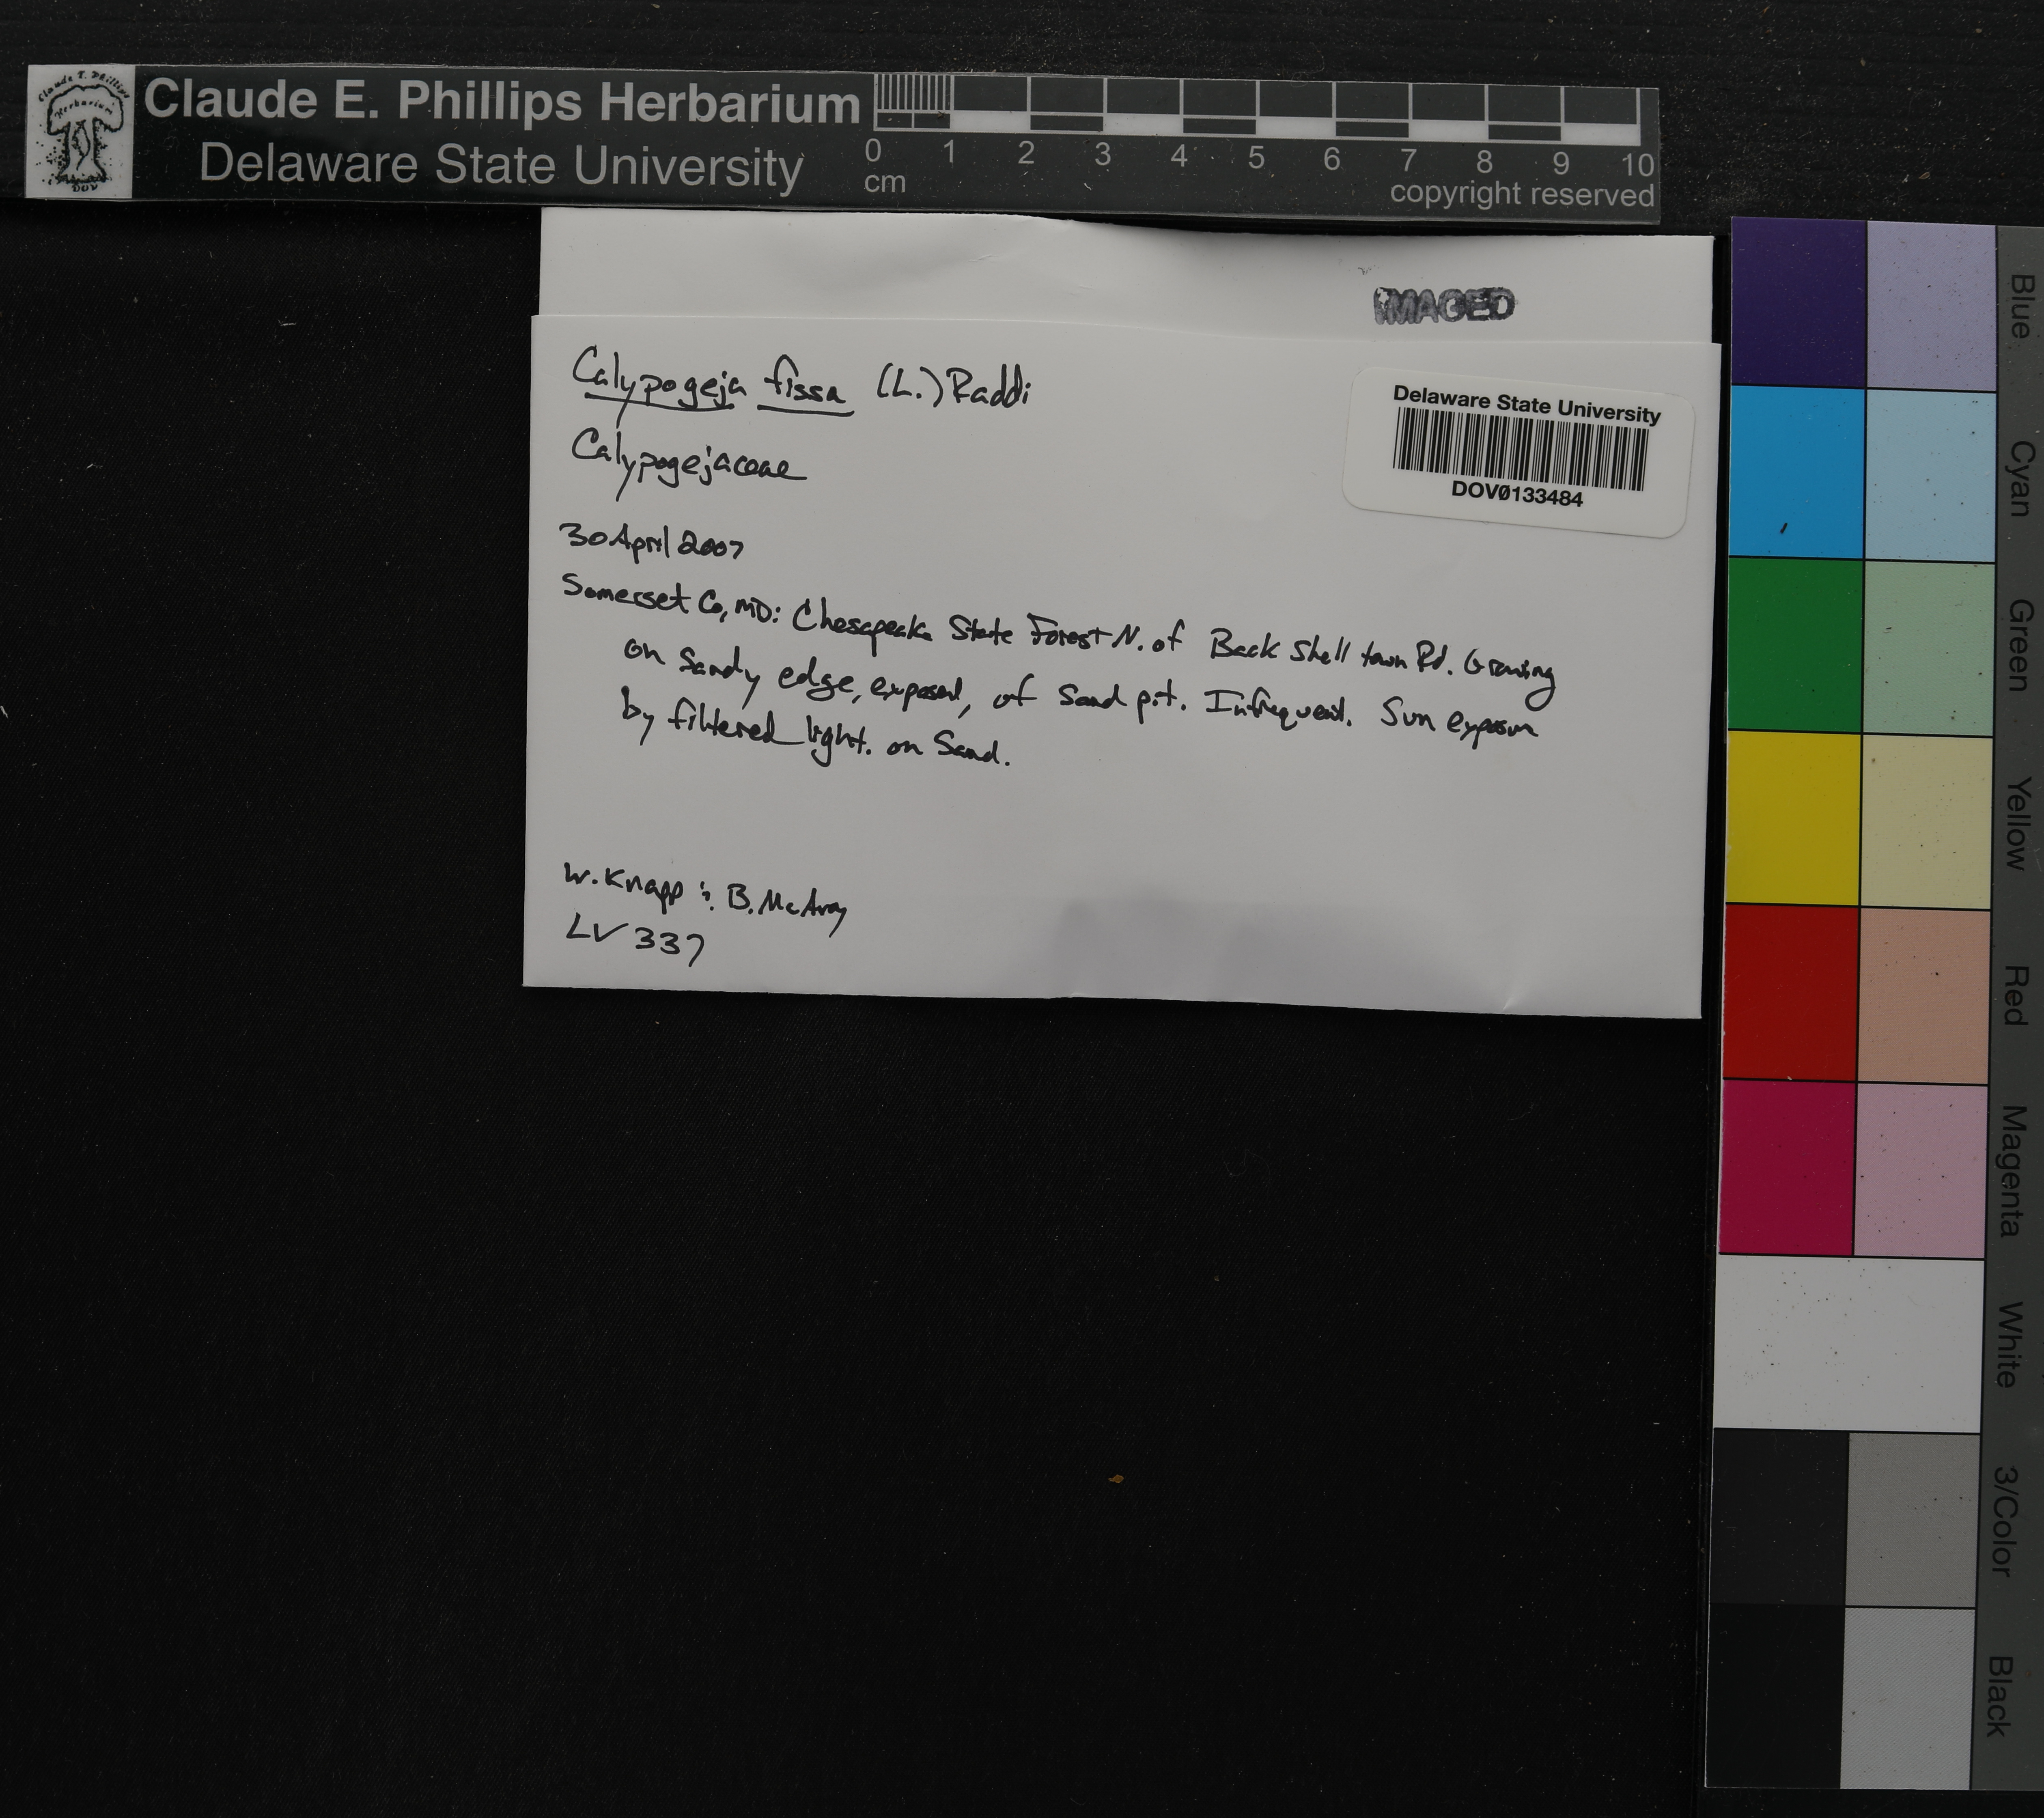 Claude E. Phillips Herbarium
Delaware State University
0 1 2 3 4 5 6 7 8 9 10
cm
copyright reserved
IMAGED
Calypogeja fissa (L.) Raddi
Calypogejaceae
Delaware State University
DOV0133484
30 April 2007
Somerset Co, MD: Chesapeake State Forest N. of Back Shell town Rd. Growing
on sandy edge, exposed, of Sand pit. Infrequent. Sun exposure
by filtered light. on Sand.
W. Knapp & B. McAvoy
LV 337
Blue
Cyan
Green
Yellow
Red
Magenta
White
3/Color
Black